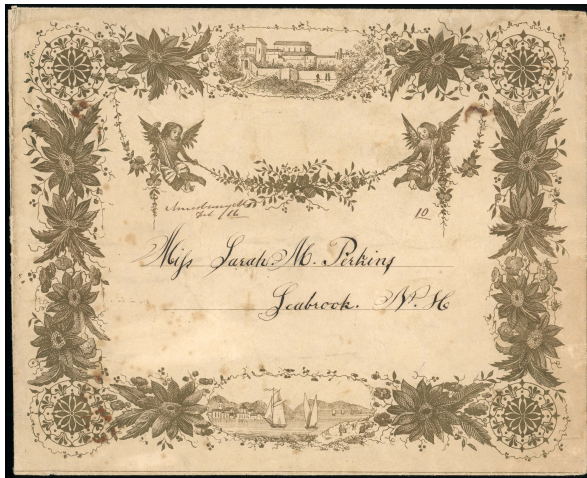 Amesbury Ms
Feb 16
10
Miss Sarah M. Perkins
Seabrook. N. H